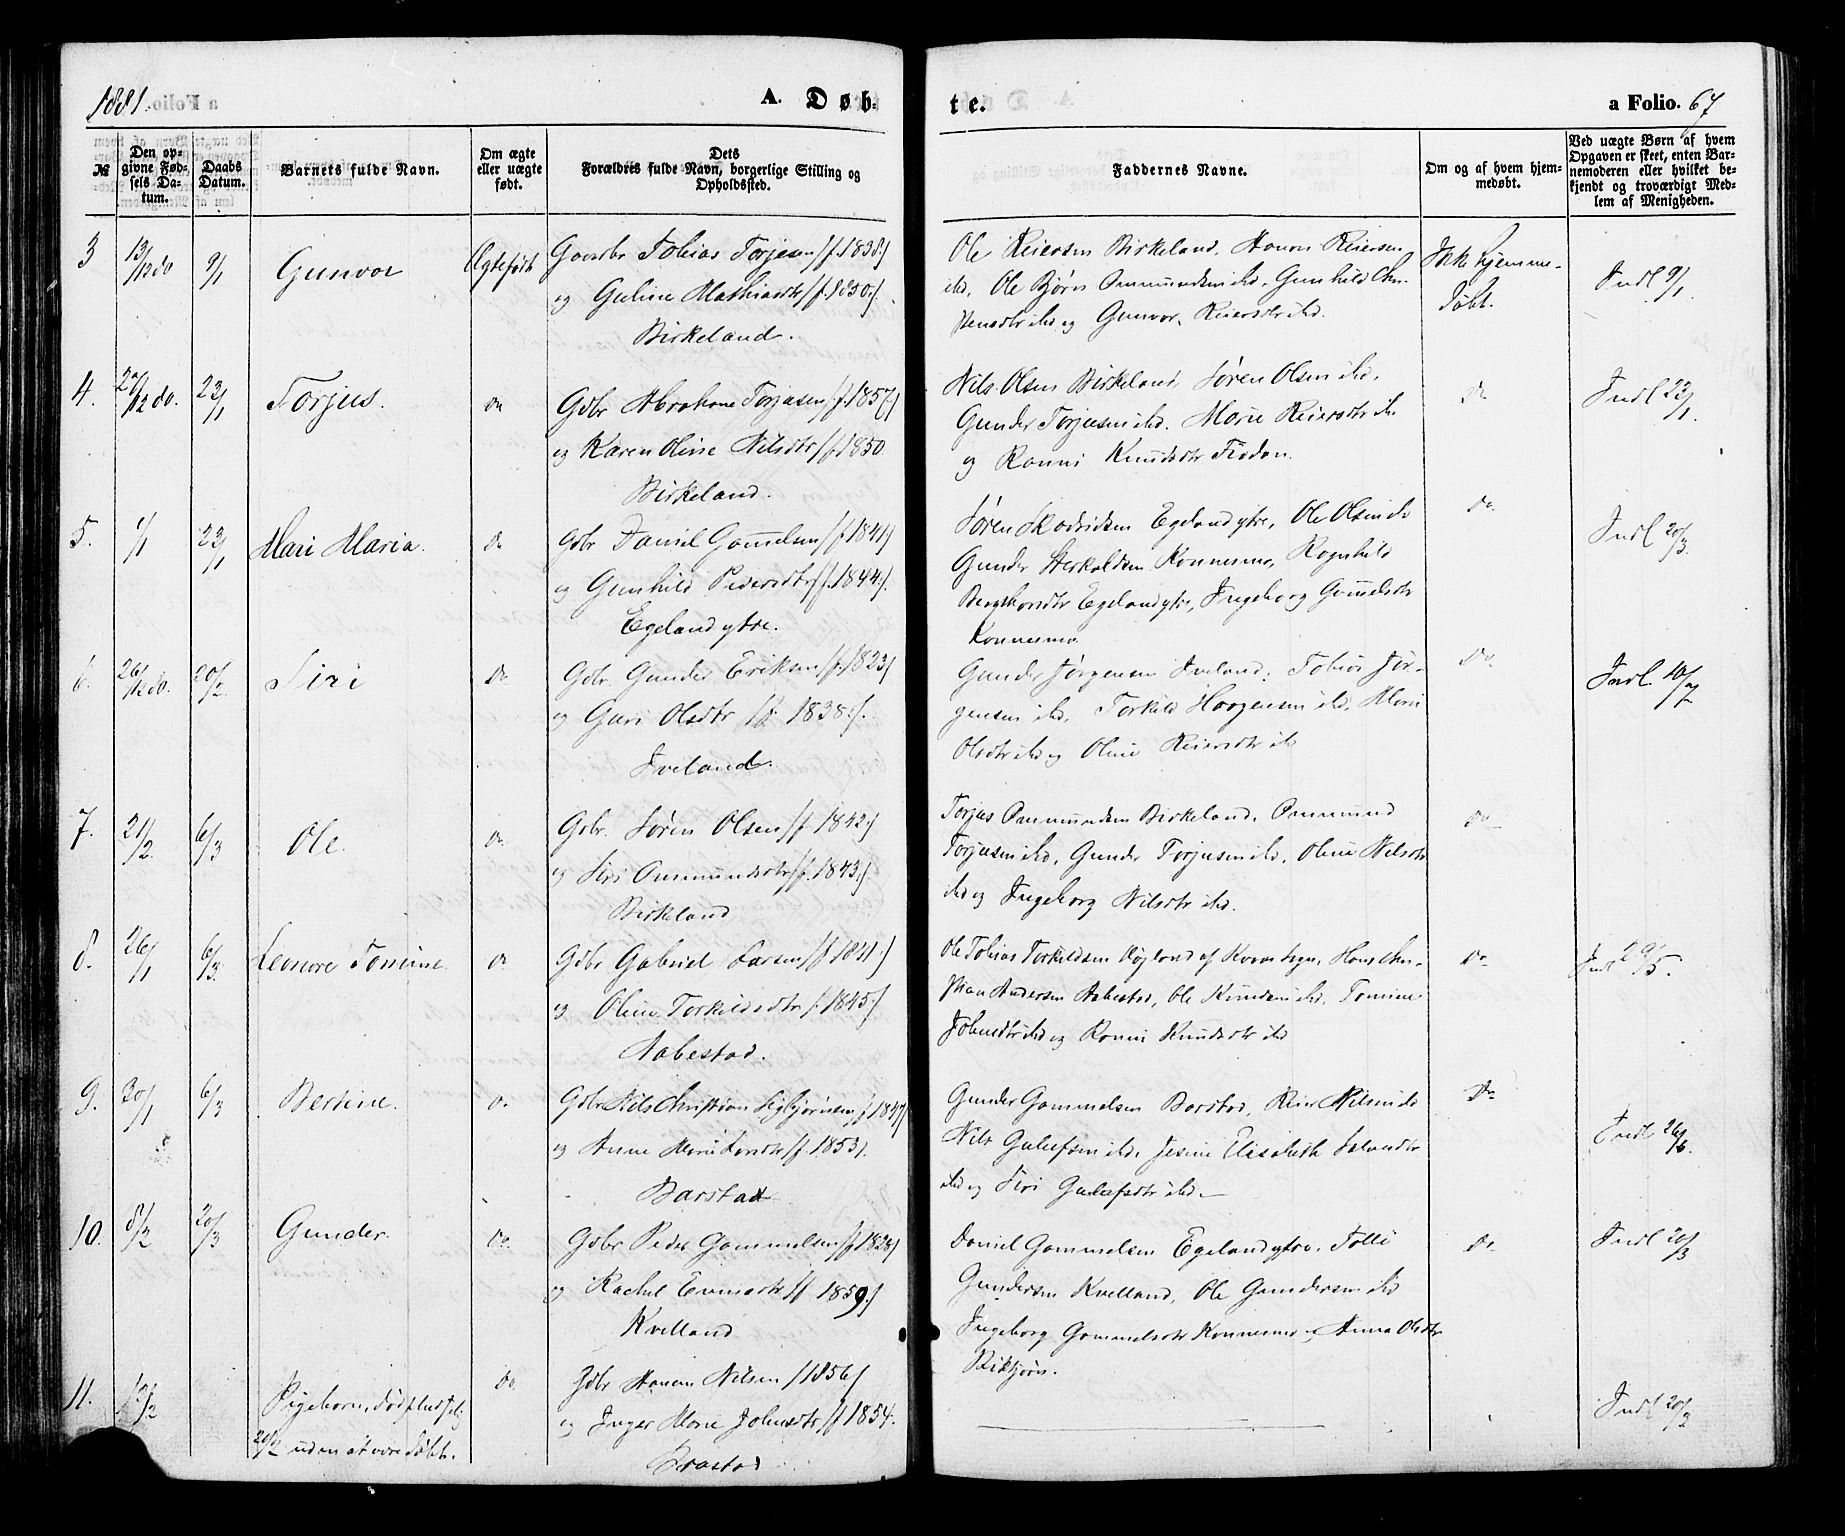 1881.
A. Døb-
te.
a Folio. 67
№
Den op-
givne Fød-
sels Da-
tum.
Daabs
Datum.
Barnets fulde Navn.
Om ægte
eller uægte
født.
Dets
Forældres fulde Navn, borgerlige Stilling og
Opholdssted.
Faddernes Navne.
Om og af hvem hjem-
medøbt.
Ved uægte Børn af hvem
Opgaven er skeet, enten Bar-
nemoderen eller hvilket be-
kjendt og troværdigt Med-
lem af Menigheden.
3 13/12 do 9/1 Gunvor Ægtefødt Gaardbr Tobias Torjesen /f. 1838/
og Guline Mathiasdtr /f. 1850./.
Birkeland.
Ole Reiersen Birkeland,
ibd. Ole Bjørn Ommundsen ibd. Gunhild Chri-
stensdtr ibd og Gunvor Reiersdtr ibd.
Ikke hjemme-
døbt.
Indl 9/1.
4. 12 do. 23/1 Torjus. Do Gdbr Abraham Torjusen /f. 1857/
og Karen Oline Nilsdtr /f. 1850
Birkeland.
Nils Olsen Birkeland, Søren Olsen ibd.
Gunder Torjusen ibd. Marie Reiersdtr ibd
og Ranni Knudsdtr
Do
Indl 23/1.
5. 1/1 23/1 Mari Maria. Do Gdbr Daniel Gammelsen /f. 1841/
og Gunhild Pedersdtr /f. 1844./.
Egeland ytre.
Søren Egeland ytre, Ole Olsen ibd
Gunder Konnesmo, Ragnhild
Egeland ytre, Ingeborg Gamelsdtr
Konnesmo
Do.
Indl 20/3.
6. 26/12 do. 20/2 Siri Do Gdbr. Gunder Eriksen /f. 1823/
og Guri Olsdtr /f. 1838./.
Iveland.
Gunder Jørgensen Iveland, Tobias Jør-
gensen ibd, Torkild ibd, Mari
Olsdtr ibd og Oline Reiersdtr ib
Do.
Indl. 10/7
7. 21/2 6/3 Ole. Do Gdbr. Søren Olsen /f. 1842./
og Siri Ommundsdtr /f. 1843./.
Birkeland
Torjus Ommundsen Birkeland, Ommund
Torjusen ibd, Gunder Torjusen ibd, Oline Nilsdtr
ibd og Ingeborg Nilsdtr ibd.
Do
8. 26/1 6/3. Leonore Tomine Do Gdbr Gabriel Larsen /f. 1841./
og Oline Torkildsdtr /f. 1845./
Aabestad.
Ole Tobias Torkildsen Høyland af Sogn, Hans Chri-
stian Andersen Aabestad, Ole Knudsen ibd. Tomine
Johnsdtr ibd og Ranni Knudsdtr ibd
Do
Indl 29/5.
9. 30/1 6/3 Bertine. Do Gdbr Nils Christian Sigbjørnsen /f. 1847/
og Anne Marie Larsdtr /f. 1853/.
Barstad
Gunder Gammelsen Barstad, Reier Nilsen ibd
Nils Gulufsen ibd. Jesine Elisabeth
ibd og Siri Gulufsdtr ibd.
Do
Indl 26/6.
10. 8/2 20/3 Gunder. Do. Gdbr Peder Gammelsen /f. 1828/
og Rachel /f. 1859./
Kvelland
Daniel Gammelsen Egeland ytre, Tolli
Gundersen Kvelland, Ole Gundersen ibd
Ingeborg Gammelsdtr Konnesmo og Anna Olsdtr
Do
Indl 20/3
11. 13/2 Pigebarn, død pludselig
20/2 uden at være døbt. Do Gdbr Nilsen /1856/
og Inger Marie Johnsdtr /f. 1854.
Indl 20/3